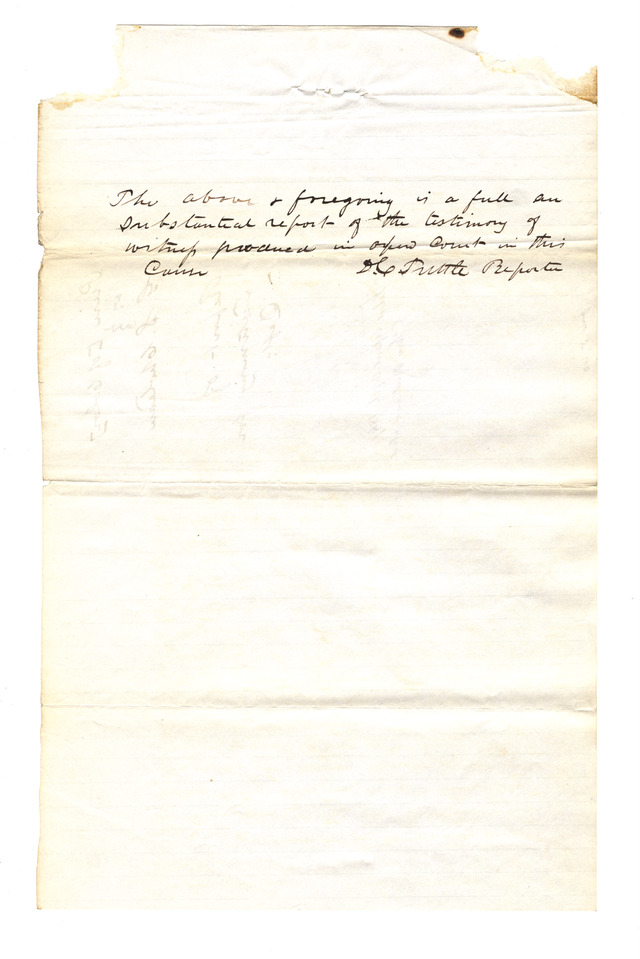 The above & foregoing is a full an
Substantial report of the testimony of
witness produced in open Court in this
Cause D C Tuttle Reporter